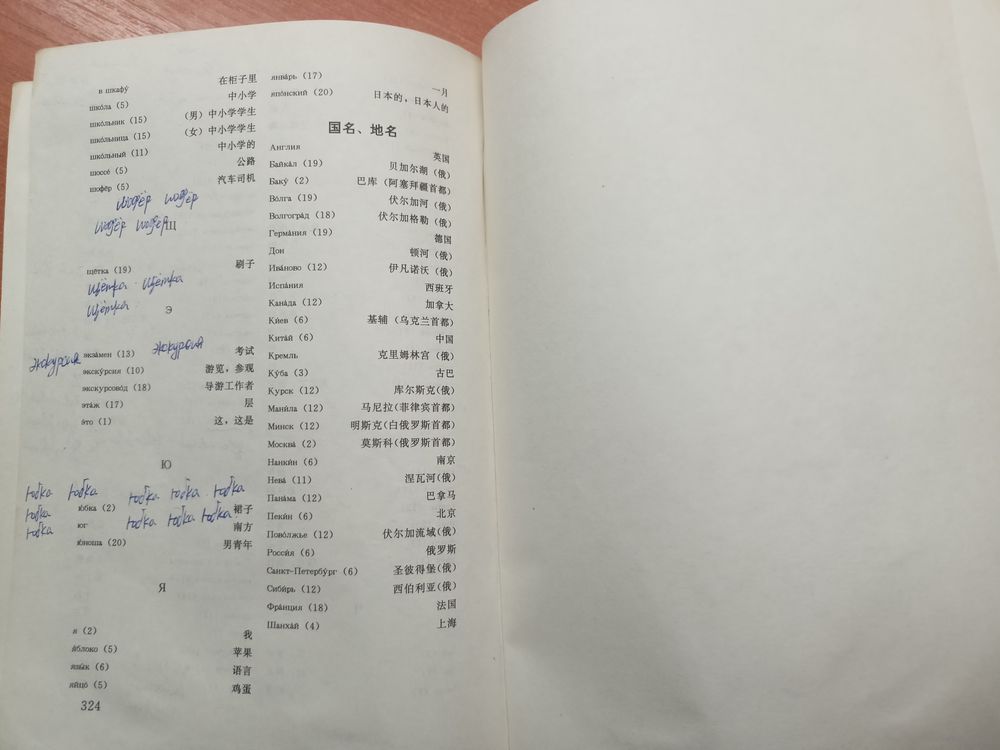 в шкафу́ 在柜子里
шко́ла (5) 中小学
шко́льник (15) （男）中小学学生
шко́льница (15) （女）中小学学生
шко́льный (11) 中小学的
шоссе́ (5) 公路
шофёр (5) 汽车司机
шофёр шофёр
шофёр шофёр Щ
щётка (19) 刷子
щётка щётка
щётка
Э
экскурсия
экза́мен (13) 考试
экскурсия
экску́рсия (10) 游览，参观
экскурсово́д (18) 导游工作者
эта́ж (17) 层
э́то (1) 这，这是
Ю
юбка юбка юбка юбка юбка
юбка
ю́бка (2) 裙子
юбка юбка юбка
юбка
юг 南方
ю́ноша (20) 男青年
Я
я (2) 我
я́блоко (5) 苹果
язы́к (6) 语言
яйцо́ (5) 鸡蛋
324
янва́рь (17) 一月
япо́нский (20) 日本的，日本人的
国名、地名
Англия 英国
Байка́л (19) 贝加尔湖（俄）
Баку́ (2) 巴库（阿塞拜疆首都）
Во́лга (19) 伏尔加河（俄）
Волгогра́д (18) 伏尔加格勒（俄）
Герма́ния (19) 德国
Дон 顿河（俄）
Ива́ново (12) 伊凡诺沃（俄）
Испа́ния 西班牙
Кана́да (12) 加拿大
Ки́ев (6) 基辅（乌克兰首都）
Кита́й (6) 中国
Кремль 克里姆林宫（俄）
Ку́ба (3) 古巴
Курск (12) 库尔斯克（俄）
Мани́ла (12) 马尼拉（菲律宾首都）
Минск (12) 明斯克（白俄罗斯首都）
Москва́ (2) 莫斯科（俄罗斯首都）
Нанки́н (6) 南京
Нева́ (11) 涅瓦河（俄）
Пана́ма (12) 巴拿马
Пеки́н (6) 北京
Пово́лжье (12) 伏尔加流域（俄）
Росси́я (6) 俄罗斯
Санкт-Петербу́рг (6) 圣彼得堡（俄）
Сиби́рь (12) 西伯利亚（俄）
Фра́нция (18) 法国
Шанха́й (4) 上海